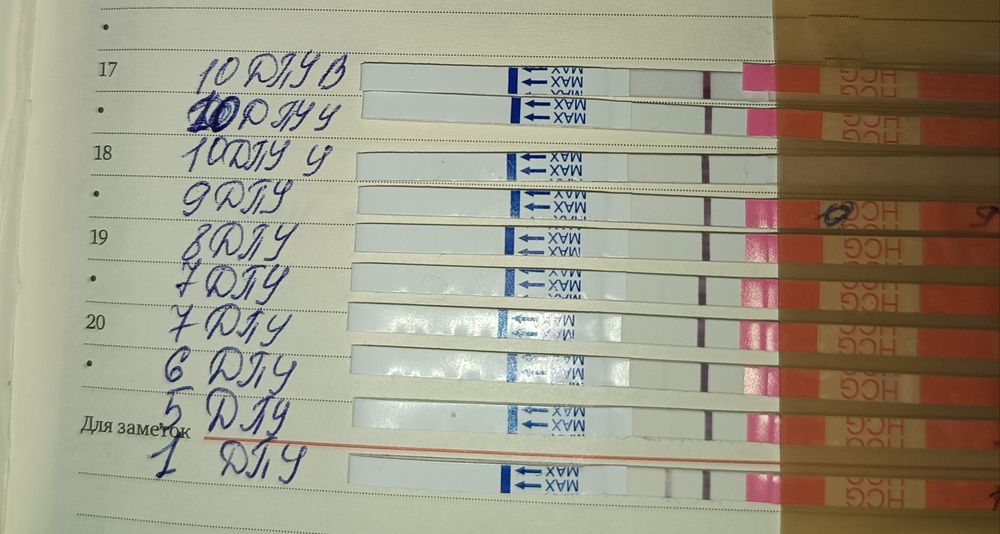 17
10 ДПУ В
10 ДПУ У
18
10 ДПУ У
9 ДПУ
19
8 ДПУ
7 ДПУ
20
7 ДПУ
6 ДПУ
5 ДПУ
Для заметок
1 ДПУ
MAX
HCG
MAX
HCG
MAX
MAX
HCG
9
MAX
HCG
MAX
HCG
MAX
HCG
MAX
HCG
MAX
HCG
MAX
HCG